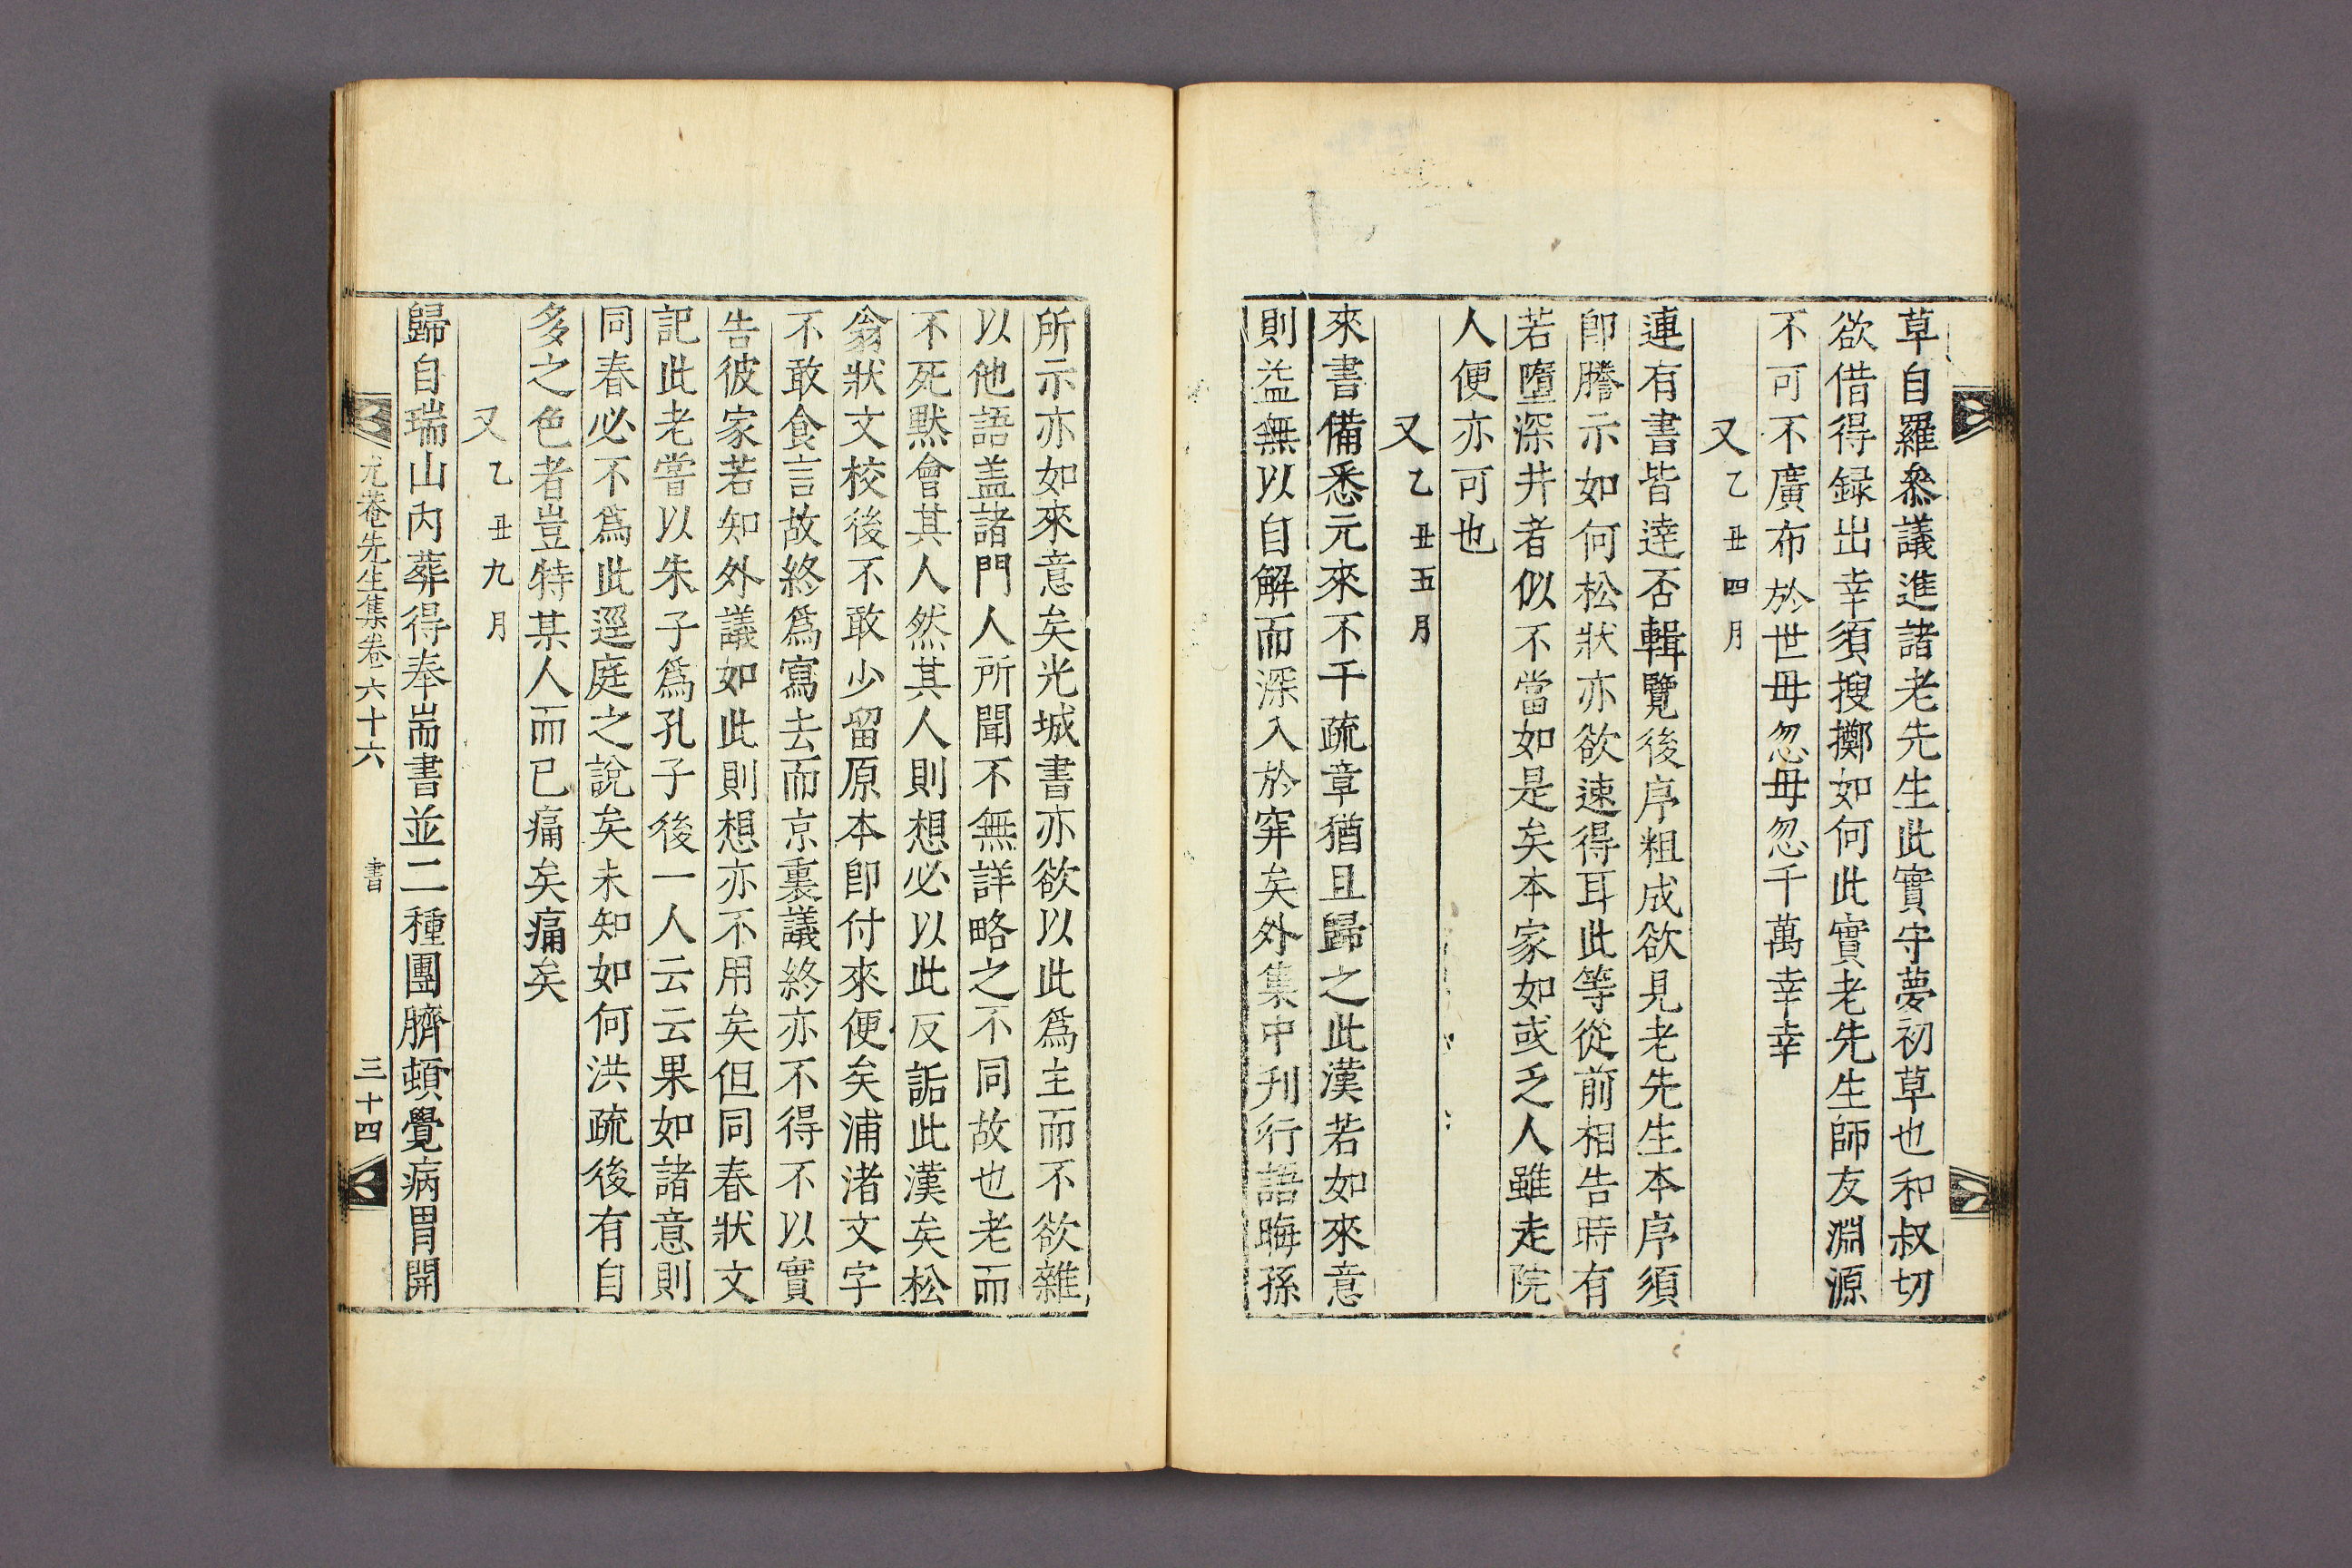 草自羅叅議進諸老先生此實守夢初草也和叔切
欲借得録出幸須搜擲如何此實老先生師友淵源
不可不廣布於世毋忽毋忽千萬幸幸
又乙丑四月
連有書皆達否輯覽後序粗成欲見老先生本序須
卽謄示如何松狀亦欲速得耳此等從前相告時有
若墮深井者似不當如是矣本家如或乏人雖走院
人便亦可也
又乙丑五月
來書備悉元來不干疏章猶且歸之此漢若如來意
則益無以自解而深入於穽矣外集中刋行語晦孫
所示亦如來意矣光城書亦欲以此爲主而不欲雜
以他語盖諸門人所聞不無詳略之不同故也老而
不死黙會其人然其人則想必以此反詬此漢矣松
翁狀文校後不敢少留原本卽付來便矣浦渚文字
不敢食言故終爲寫去而京裏議終亦不得不以實
告彼家若知外議如此則想亦不用矣但同春狀文
記此老嘗以朱子爲孔子後一人云云果如諸意則
同春必不爲此逕庭之說矣未知如何洪疏後有自
多之色者豈特某人而已痛矣痛矣
又乙丑九月
歸自瑞山內葬得奉耑書並二種團臍頓覺病胃開
尤菴先生集卷六十六　書　三十四